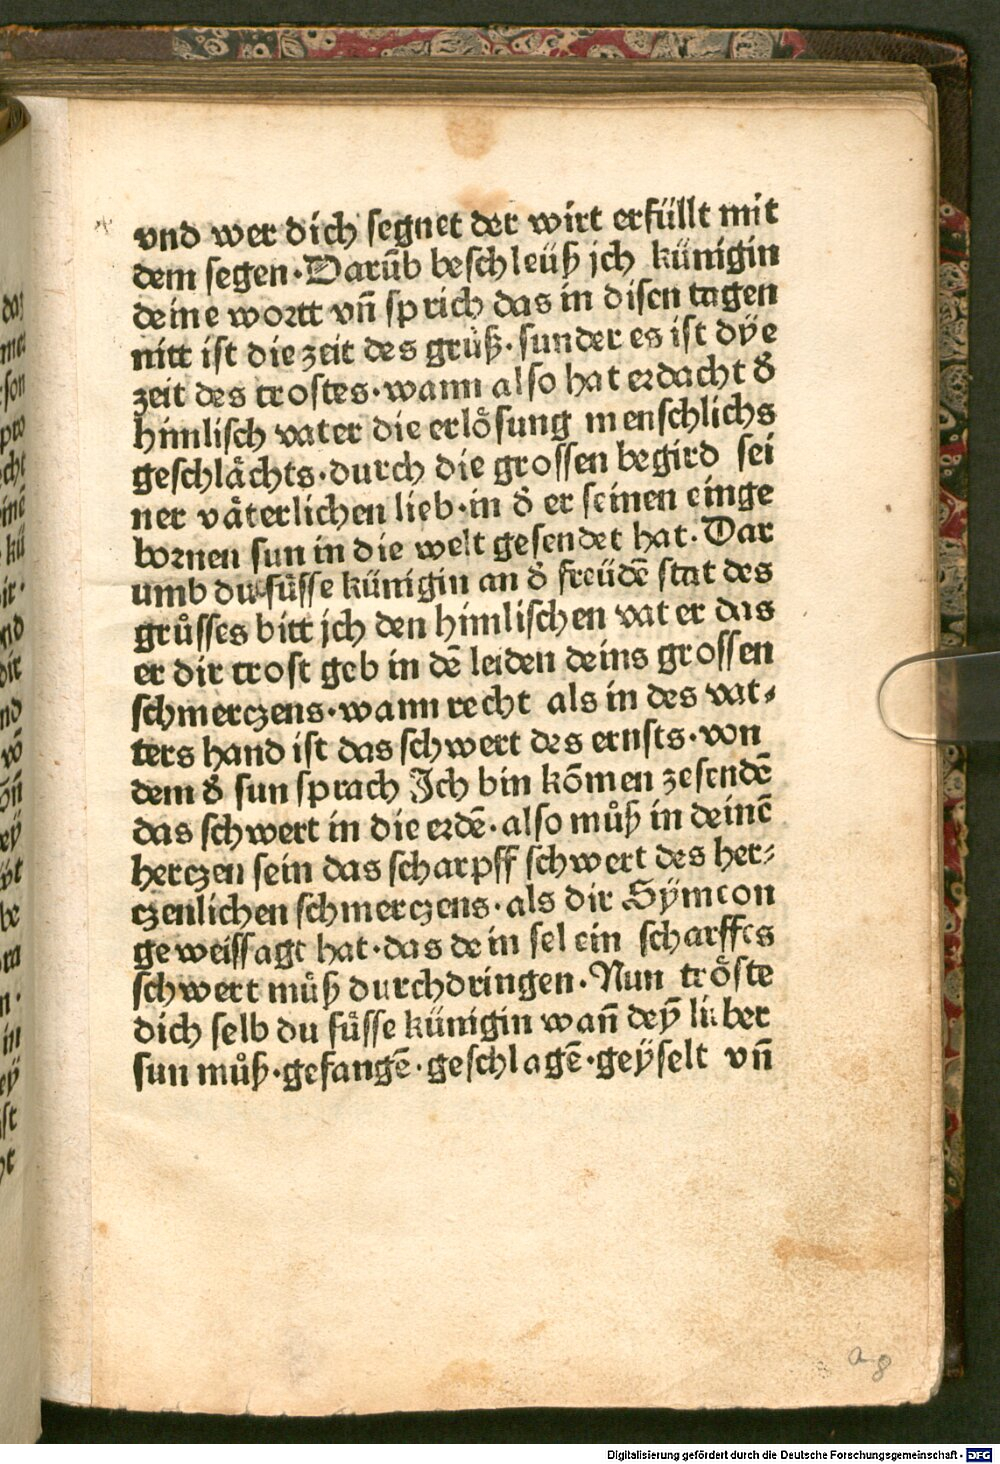 vnd wer dich segnet der wirt erfüllt mit
dem segen·Darūb beschleüß jch künigin
deine wortt vñ sprich das in disen tagen
nitt ist die zeit des grůß·sunder es ist dÿe
zeit des trostes·wann also hat erdacht d̕
himlisch vater die erlo̊sung menschlichs
geschla̋chts·durch die grossen begird sei
ner va̋terlichen lieb·in d̕ er seinen einge
bornen sun in die welt gesendet hat·Dar
umb du sůsse künigin an d̕ freüdē stat des
grůsses bitt jch den himlischen vater das
er dir trost geb in dē leiden deins grossen
schmerczens·wann recht als in des vat⸗
ters hand ist das schwert des ernsts·von
dem d̕ sun sprach Jch bin kōmen zesendē
das schwert in die erdē·also můß in deinē
herczen sein das scharpff schwert des her⸗
czenlichen schmerczens·als dir Sÿmeon
geweissagt hat·das dein sel ein scharffes
schwert můß durchdringen·Nun tro̊ste
dich selb du sůsse künigin wañ deÿ lieber
sun můß·gefangē·geschlagē·geÿselt vñ
a 8
Digitalisierung gefördert durch die Deutsche Forschungsgemeinschaft - DFG